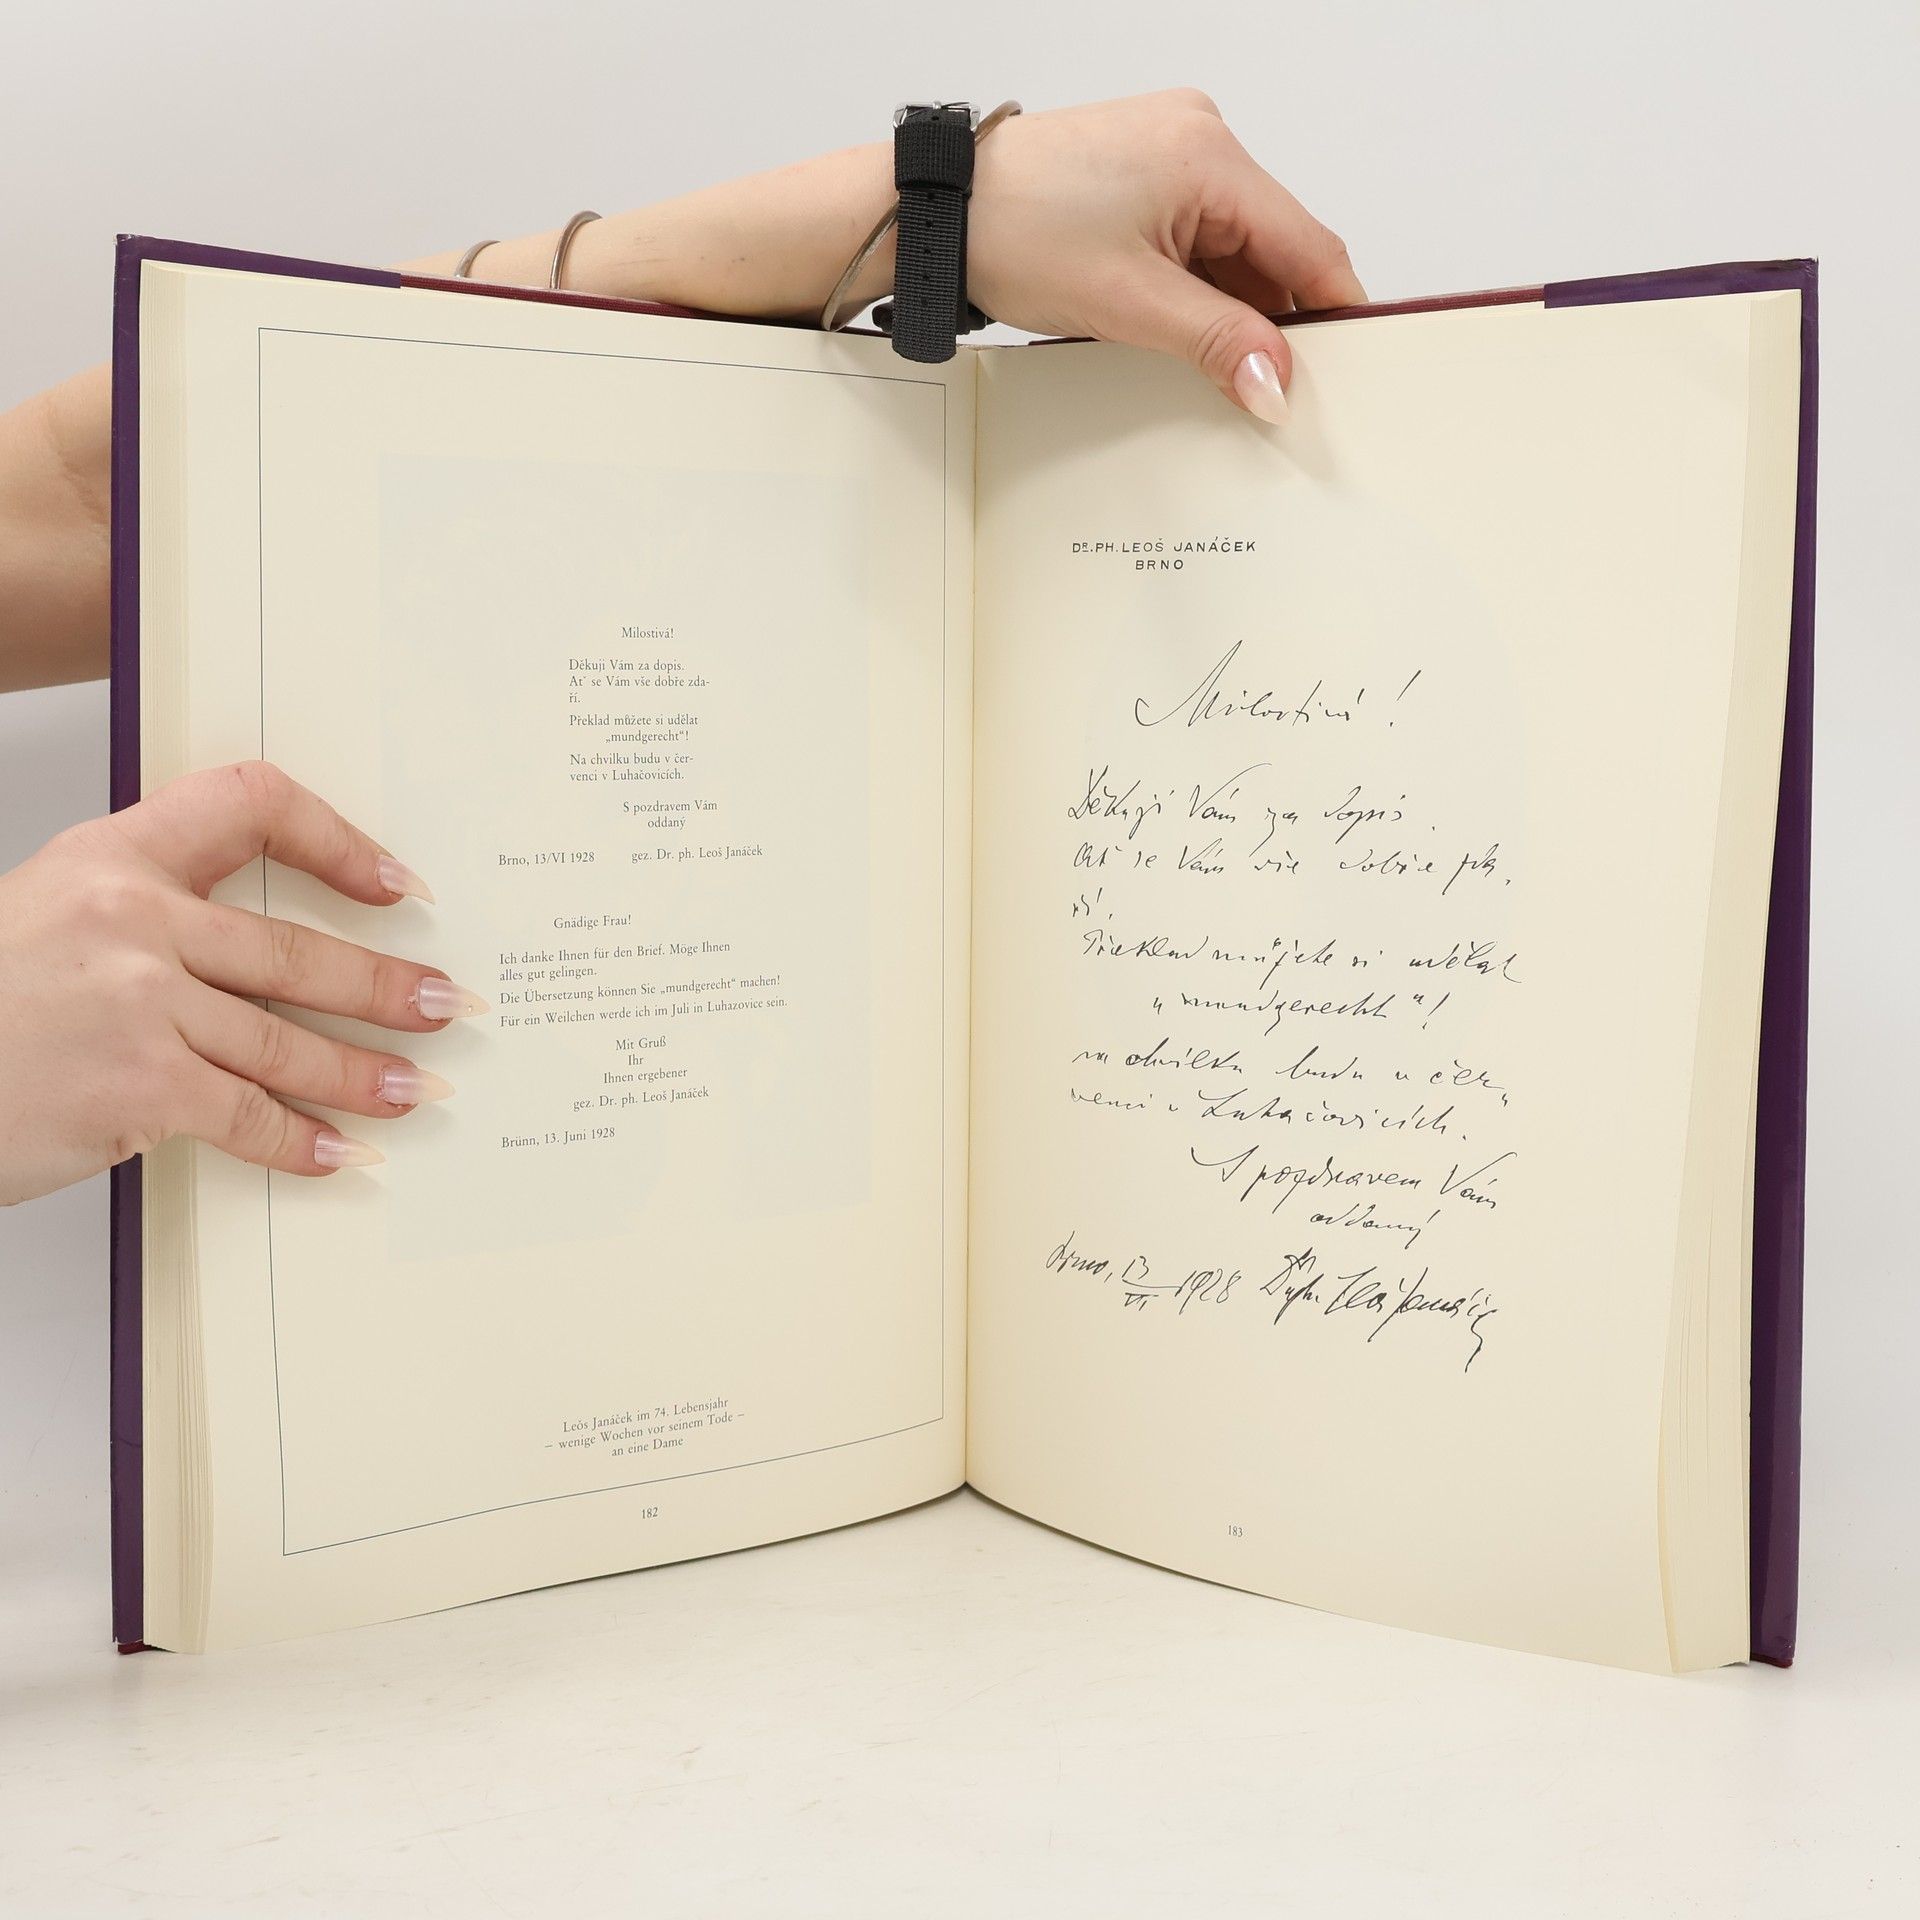 Milostivá!
Děkuji Vám za dopis.
Ať se Vám vše dobře zda-
ří.
Překlad můžete si udělat
„mundgerecht“!
Na chvilku budu v čer-
venci v Luhačovicích.
S pozdravem Vám
oddaný
Brno, 13/VI 1928 gez. Dr. ph. Leoš Janáček
Gnädige Frau!
Ich danke Ihnen für den Brief. Möge Ihnen
alles gut gelingen.
Die Übersetzung können Sie „mundgerecht“ machen!
Für ein Weilchen werde ich im Juli in Luhazovice sein.
Mit Gruß
Ihr
Ihnen ergebener
gez. Dr. ph. Leoš Janáček
Brünn, 13. Juni 1928
Leoš Janáček im 74. Lebensjahr
– wenige Wochen vor seinem Tode –
an eine Dame
182
DR. PH. LEOŠ JANÁČEK
BRNO
Milostivá!
Děkuji Vám za dopis.
Ať se Vám vše dobře zda-
ří.
Překlad můžete si udělat
„mundgerecht“!
na chvilku budu v čer„
venci v Luhačovicích.
S pozdravem Vám
oddaný
Brno, 13/VI 1928 Dr ph. Leoš Janáček
183